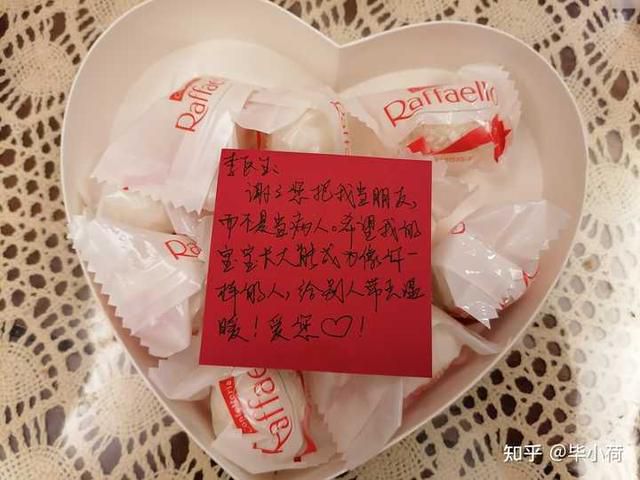 Raffaello
Raffaello
李医生:
谢谢您把我当朋友,
而不是当病人。希望我的
宝宝长大能成为像你一
样的人,给别人带去温
暖!爱您♡!
Raffae
知乎 @毕小荷